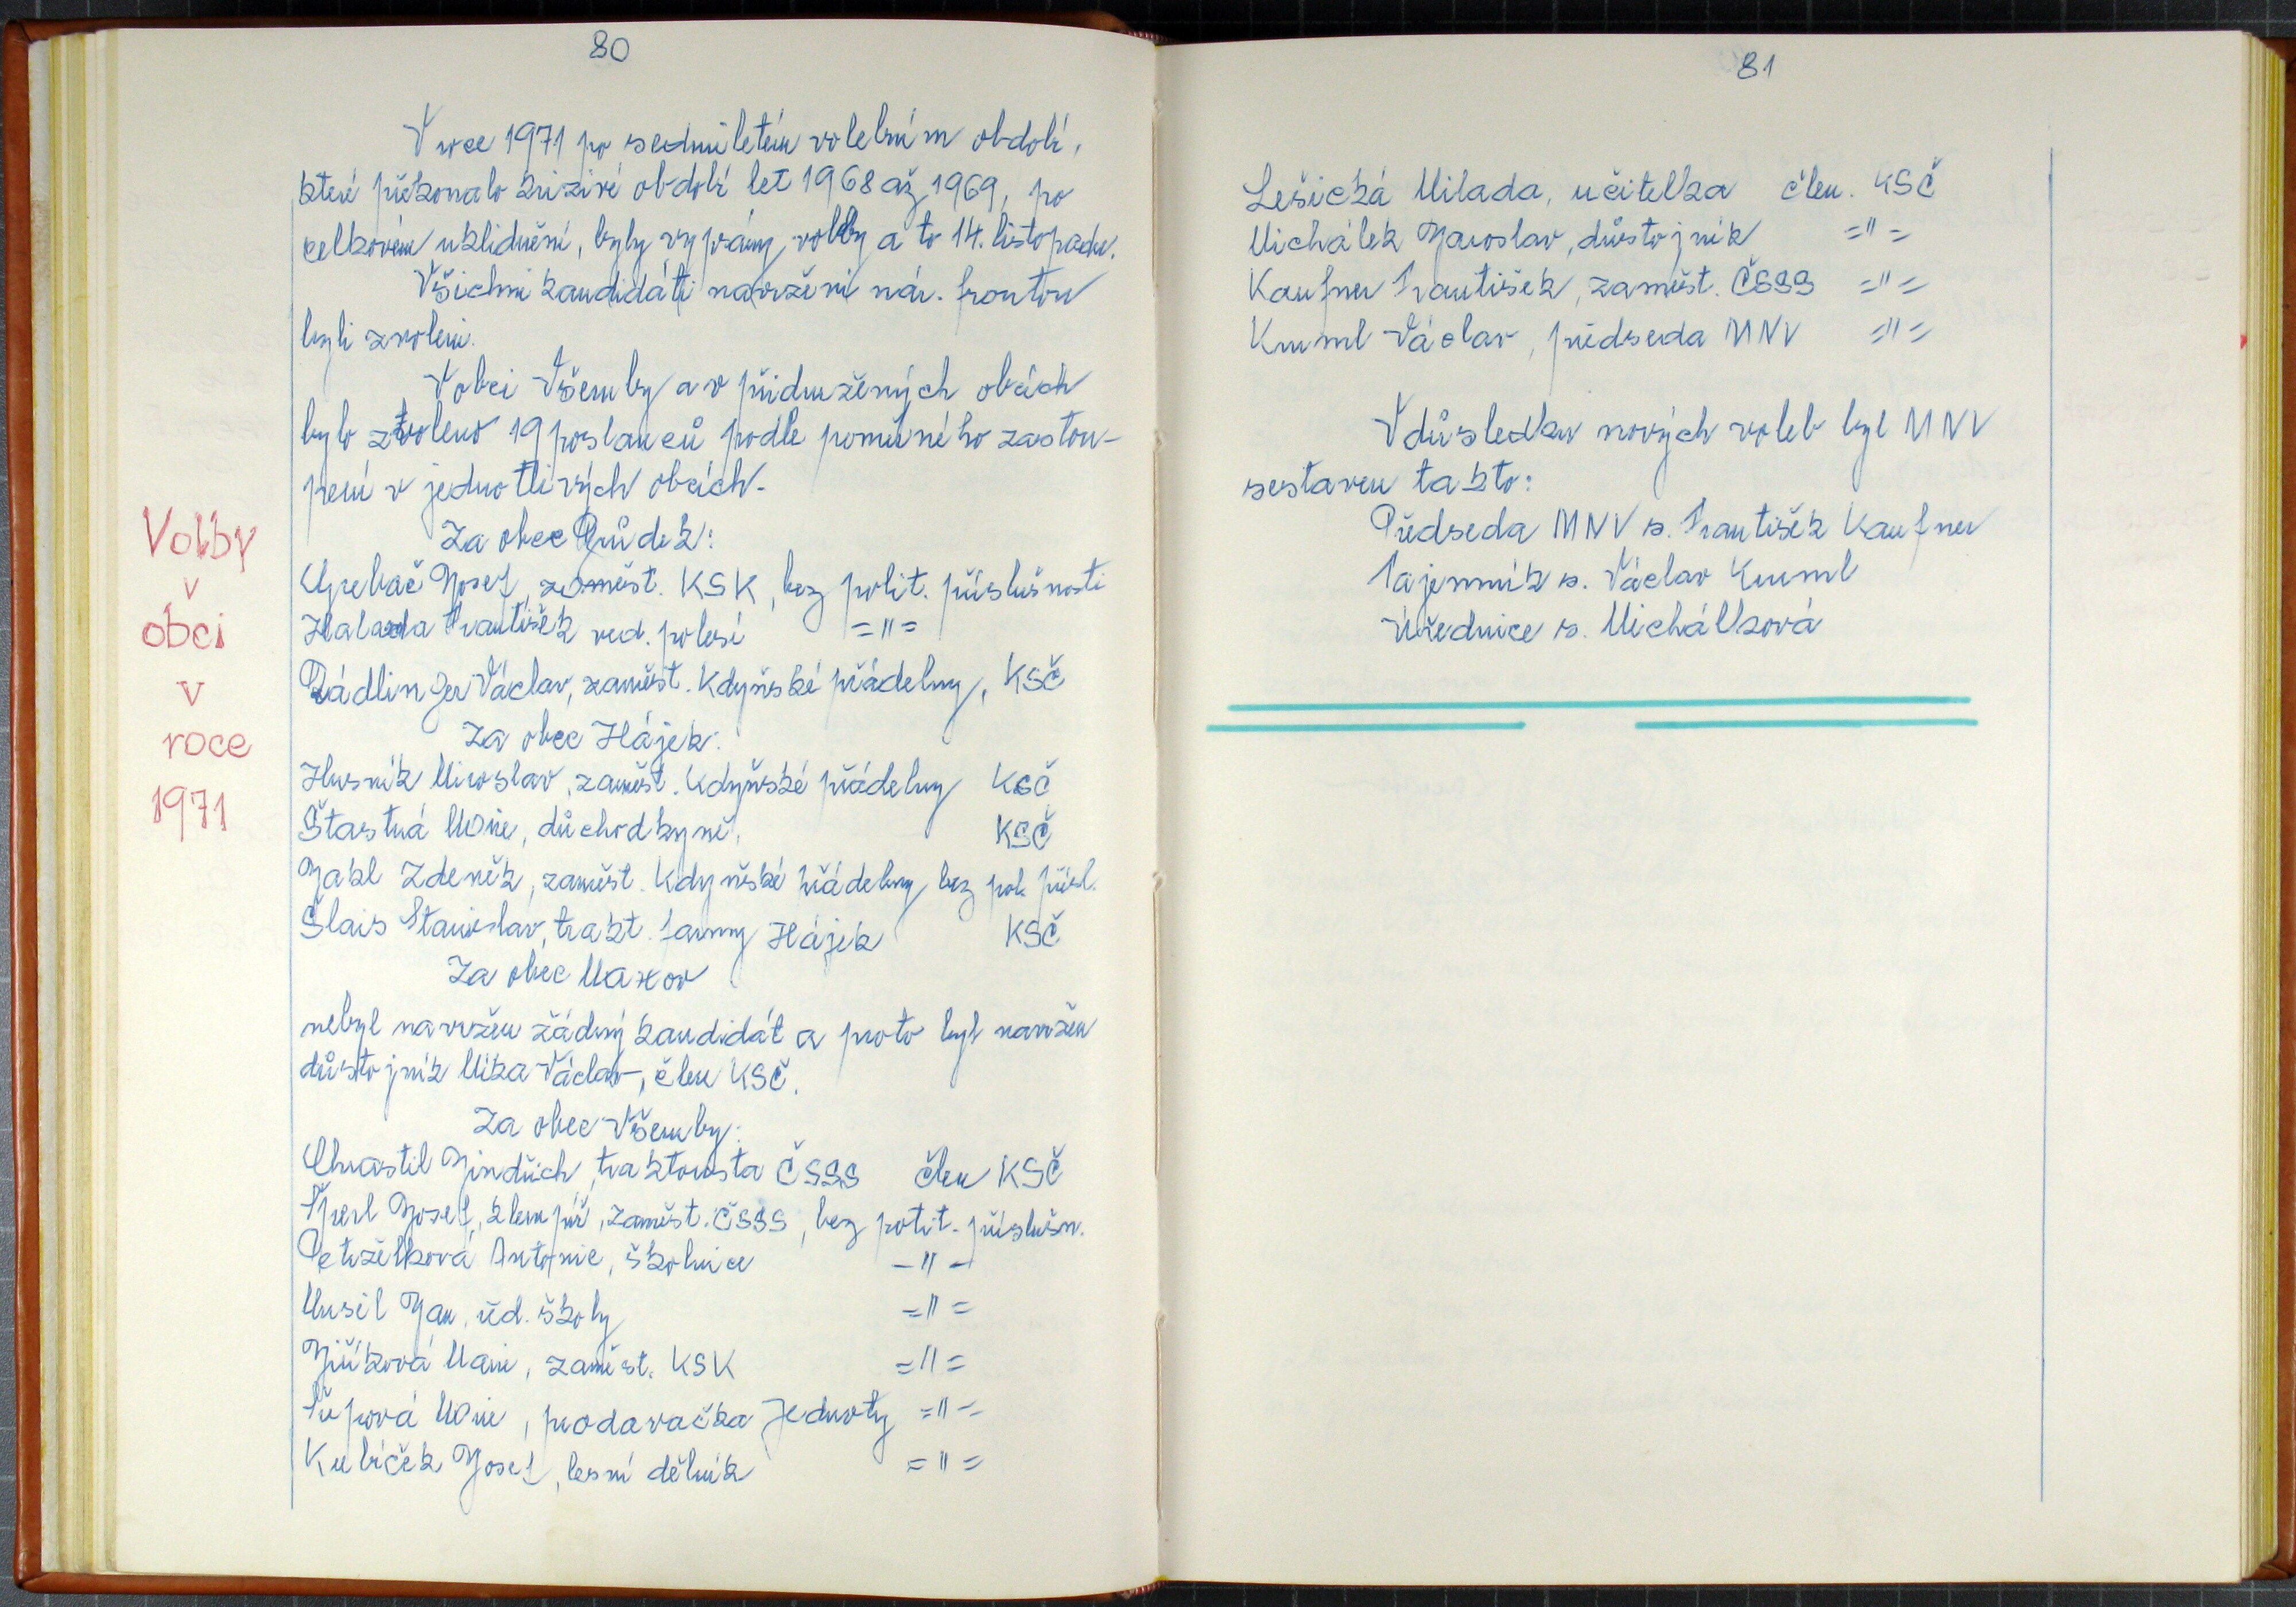 80
V roce 1971 po sedmiletém volebním období,
které překonalo krizivé období let 1968 až 1969, po
celkovém uklidnění, byly vypsány volby a to 14. listopadu.
Všichni kandidáti navržení nár. frontou
byli zvoleni.
V obci Všeruby a v přidružených obcích
bylo zvoleno 19 poslanců podle poměrného zastou-
pení v jednotlivých obcích.
Za obec Průdek:
Josef, zaměst. KSK, bez polit. příslušnosti
František ved. polesí ="=
Rádlinger Václav, zaměst. Kdyňské přádelny, KSČ
Za obec Hájek:
Husník Miroslav, zaměst. Kdyňské přádelny KSČ
Šťastná Marie, důchodkyně, KSČ
Jakl Zdeněk, zaměst. Kdyňské přádelny bez pol. přísl.
Šlais Stanislav, trakt. farmy Hájek KSČ
Za obec Maxov
nebyl navržen žádný kandidát a proto byl navržen
důstojník Mika Václav, člen KSČ.
Za obec Všeruby:
Chrastil Jindřich, traktorista ČSSS člen KSČ
Josef, klempíř, zaměst. ČSSS, bez polit. příslušn.
Petrželková Antonie, školnice -"-
Musil Jan, řed. školy ="=
Jiříková Marie, zaměst. KSK ="=
Marie, prodavačka Jednoty ="=
Kubíček Josef, lesní dělník ="=
Volby
v
obci
v
roce
1971
81
Lešická Milada, učitelka člen. KSČ
Michálek Jaroslav, důstojník ="=
Kaufner František, zaměst. ČSSS ="=
Kuml Václav, předseda MNV ="=
V důsledku nových voleb byl MNV
sestaven takto:
Předseda MNV s. František Kaufner
Tajemník s. Václav Kuml
Úřednice s. Michálková